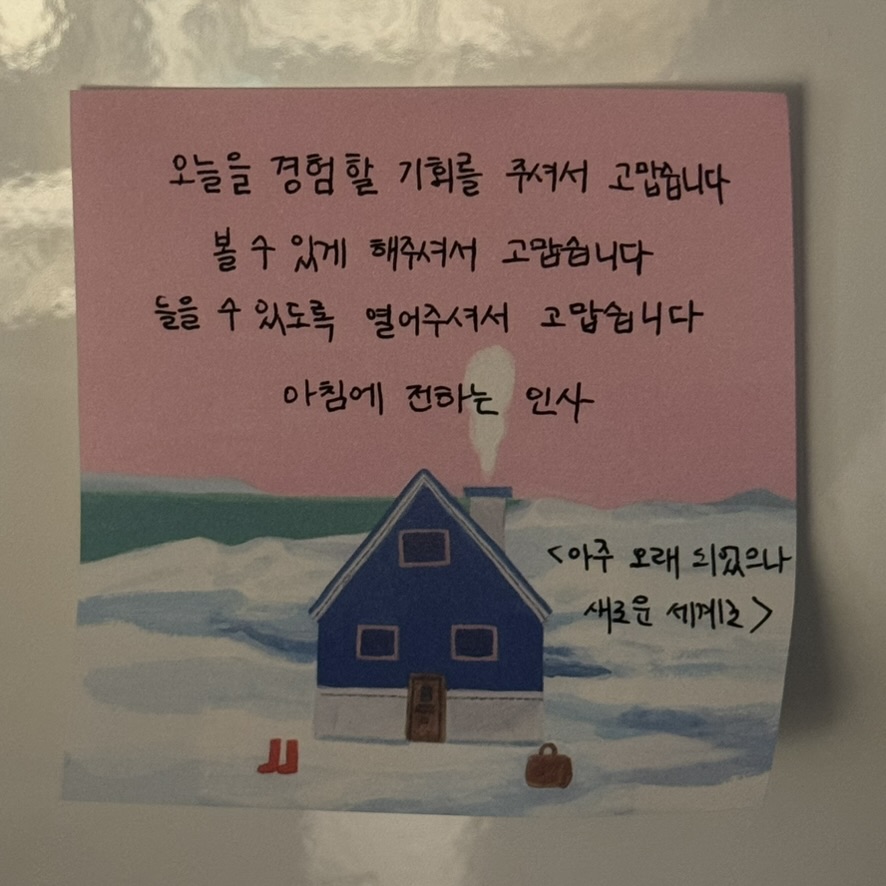 오늘을 경험할 기회를 주셔서 고맙습니다
볼 수 있게 해주셔서 고맙습니다
들을 수 있도록 열어주셔서 고맙습니다
아침에 전하는 인사
<아주 오래 되었으나
새로운 세계로>